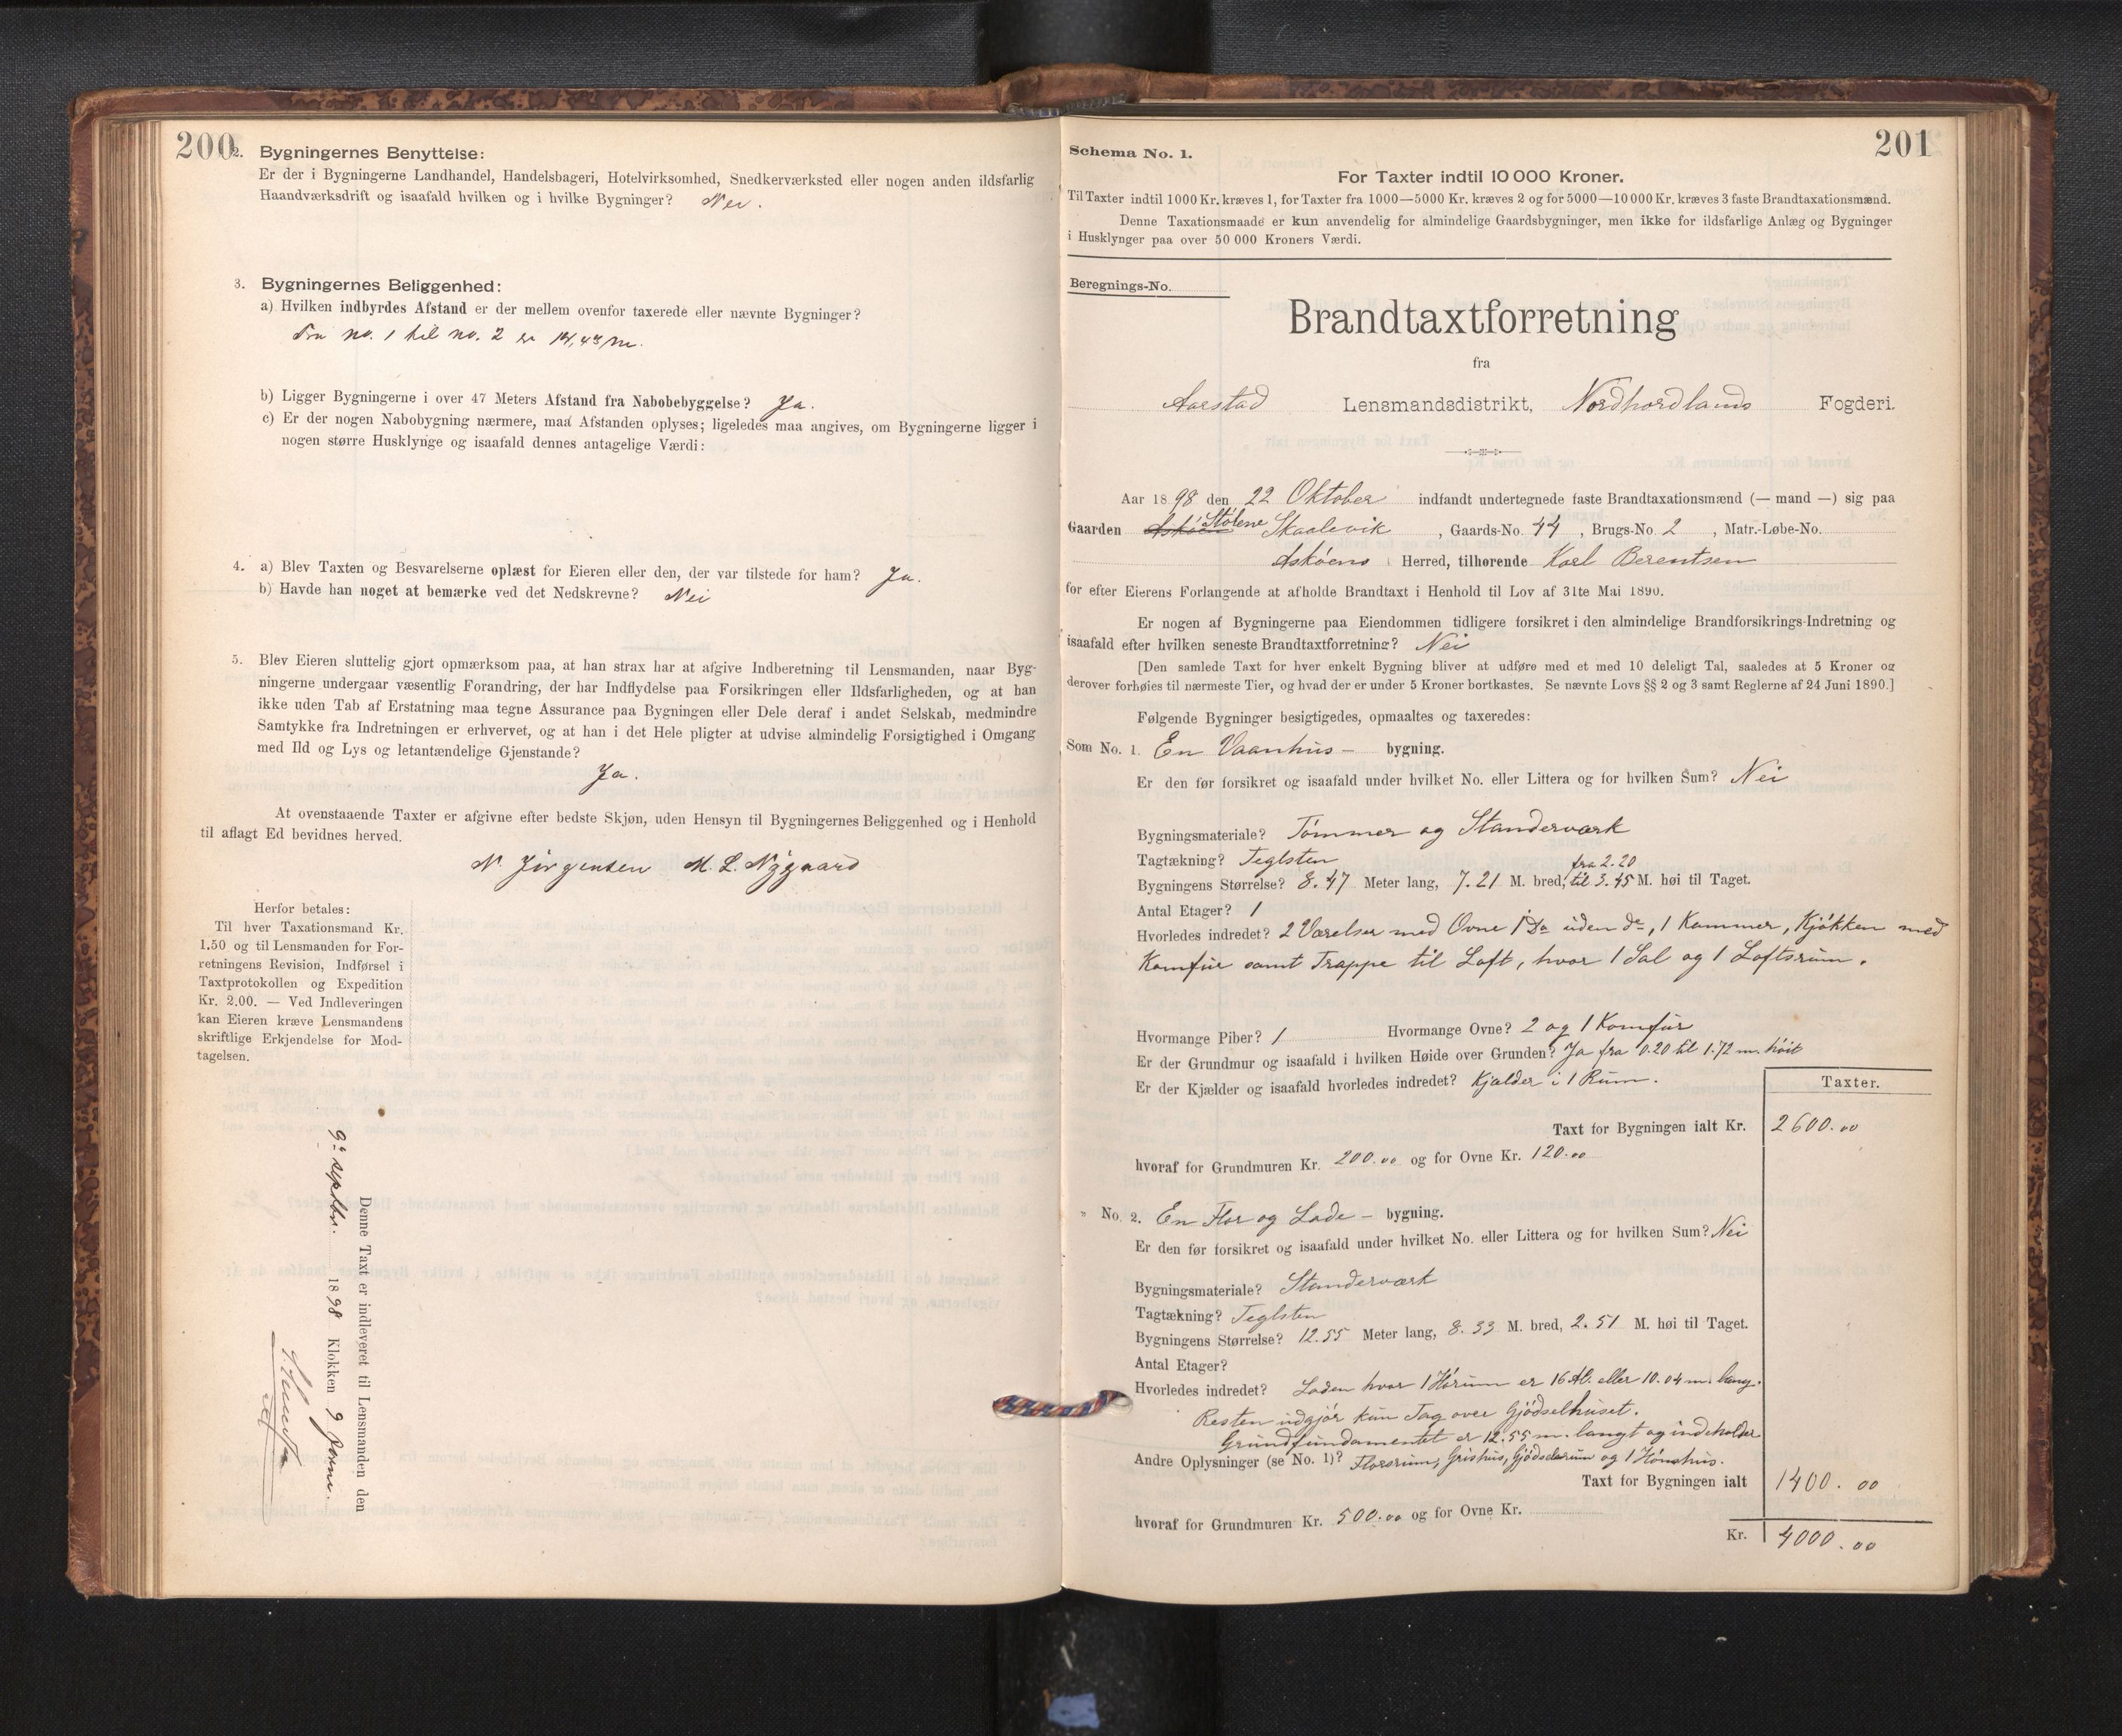 200
2. Bygningernes Benyttelse:
Er der i Bygningerne Landhandel, Handelsbageri, Hotelvirksomhed, Snedkerværksted eller nogen anden ildsfarlig
Haandværksdrift og isaafald hvilken og i hvilke Bygninger? Nei.
3. Bygningernes Beliggenhed:
a) Hvilken indbyrdes Afstand er der mellem ovenfor taxerede eller nævnte Bygninger?
Fra no. 1 til no. 2 er 14,43 m.
b) Ligger Bygningerne i over 47 Meters Afstand fra Nabobebyggelse? Ja.
c) Er der nogen Nabobygning nærmere, maa Afstanden oplyses; ligeledes maa angives, om Bygningerne ligger i
nogen større Husklynge og isaafald dennes antagelige Værdi:
4. a) Blev Taxten og Besvarelserne oplæst for Eieren eller den, der var tilstede for ham? Ja.
b) Havde han noget at bemærke ved det Nedskrevne? Nei
5. Blev Eieren sluttelig gjort opmærksom paa, at han strax har at afgive Indberetning til Lensmanden, naar Byg-
ningerne undergaar væsentlig Forandring, der har Indflydelse paa Forsikringen eller Ildsfarligheden, og at han
ikke uden Tab af Erstatning maa tegne Assurance paa Bygningen eller Dele deraf i andet Selskab, medmindre
Samtykke fra Indretningen er erhvervet, og at han i det Hele pligter at udvise almindelig Forsigtighed i Omgang
med Ild og Lys og letantændelige Gjenstande?
Ja.
At ovenstaaende Taxter er afgivne efter bedste Skjøn, uden Hensyn til Bygningernes Beliggenhed og i Henhold
til aflagt Ed bevidnes herved.
N. Jörgensen M. L. Nygaard
Herfor betales:
Til hver Taxationsmand Kr.
1.50 og til Lensmanden for For-
retningens Revision, Indførsel i
Taxtprotokollen og Expedition
Kr. 2.00. — Ved Indleveringen
kan Eieren kræve Lensmandens
skriftlige Erkjendelse for Mod-
tagelsen.
Denne Taxt er indleveret til Lensmanden den
9de septbr. 1898 Klokken 9 form.
201
Schema No. 1.
For Taxter indtil 10 000 Kroner.
Til Taxter indtil 1000 Kr. kræves 1, for Taxter fra 1000—5000 Kr. kræves 2 og for 5000—10 000 Kr. kræves 3 faste Brandtaxationsmænd.
Denne Taxationsmaade er kun anvendelig for almindelige Gaardsbygninger, men ikke for ildsfarlige Anlæg og Bygninger
i Husklynger paa over 50 000 Kroners Værdi.
Beregnings-No.
Brandtaxtforretning
fra
Aarstad Lensmandsdistrikt, Nordhordlands Fogderi.
Aar 1898 den 22 Oktober indfandt undertegnede faste Brandtaxationsmænd (— mand —) sig paa
Gaarden Askøen Stölene Skaalevik, Gaards-No. 44, Brugs-No. 2, Matr.-Løbe-No.
Askøens Herred, tilhørende Karl Berentsen
for efter Eierens Forlangende at afholde Brandtaxt i Henhold til Lov af 31te Mai 1890.
Er nogen af Bygningerne paa Eiendommen tidligere forsikret i den almindelige Brandforsikrings-Indretning og
isaafald efter hvilken seneste Brandtaxtforretning? Nei
[Den samlede Taxt for hver enkelt Bygning bliver at udføre med et med 10 deleligt Tal, saaledes at 5 Kroner og
derover forhøies til nærmeste Tier, og hvad der er under 5 Kroner bortkastes. Se nævnte Lovs §§ 2 og 3 samt Reglerne af 24 Juni 1890.]
Følgende Bygninger besigtigedes, opmaaltes og taxeredes:
Som No. 1. En Vaanhus — bygning.
Er den før forsikret og isaafald under hvilket No. eller Littera og for hvilken Sum? Nei
Bygningsmateriale? Tömmer og Standerværk
Tagtækning? Teglsten
Bygningens Størrelse? 8.47 Meter lang, 7.21 M. bred, fra 2.20 til 3.45 M. høi til Taget.
Antal Etager? 1
Hvorledes indredet? 2 Værelser med Ovne 1 Do uden do, 1 Kammer, Kjökken med
Komfur samt Trappe til Loft, hvor 1 Sal og 1 Loftsrum.
Hvormange Piber? 1 Hvormange Ovne? 2 og 1 Komfur
Er der Grundmur og isaafald i hvilken Høide over Grunden? Ja fra 0.20 til 1.72 m. höit
Er der Kjælder og isaafald hvorledes indredet? Kjælder i 1 Rum.
Taxter.
Taxt for Bygningen ialt Kr. 2600.00
hvoraf for Grundmuren Kr. 200.00 og for Ovne Kr. 120.00
" No. 2. En Flor og Lade — bygning.
Er den før forsikret og isaafald under hvilket No. eller Littera og for hvilken Sum? Nei
Bygningsmateriale? Standerværk
Tagtækning? Teglsten
Bygningens Størrelse? 12.55 Meter lang, 8.33 M. bred, 2.51 M. høi til Taget.
Antal Etager?
Hvorledes indredet? Laden hvor 1 Hörum er 16 Al. eller 10.04 m. lang.
Resten udgjör kun Tag over Gjödselhuset.
Grundfundamentet er 12.55 m. langt og indeholder
Andre Oplysninger (se No. 1)? Florsrum, Grishus, Gjödselrum og 1 Hönshus.
Taxt for Bygningen ialt 1400.00
hvoraf for Grundmuren Kr. 500.00 og for Ovne Kr.
Kr. 4000.00